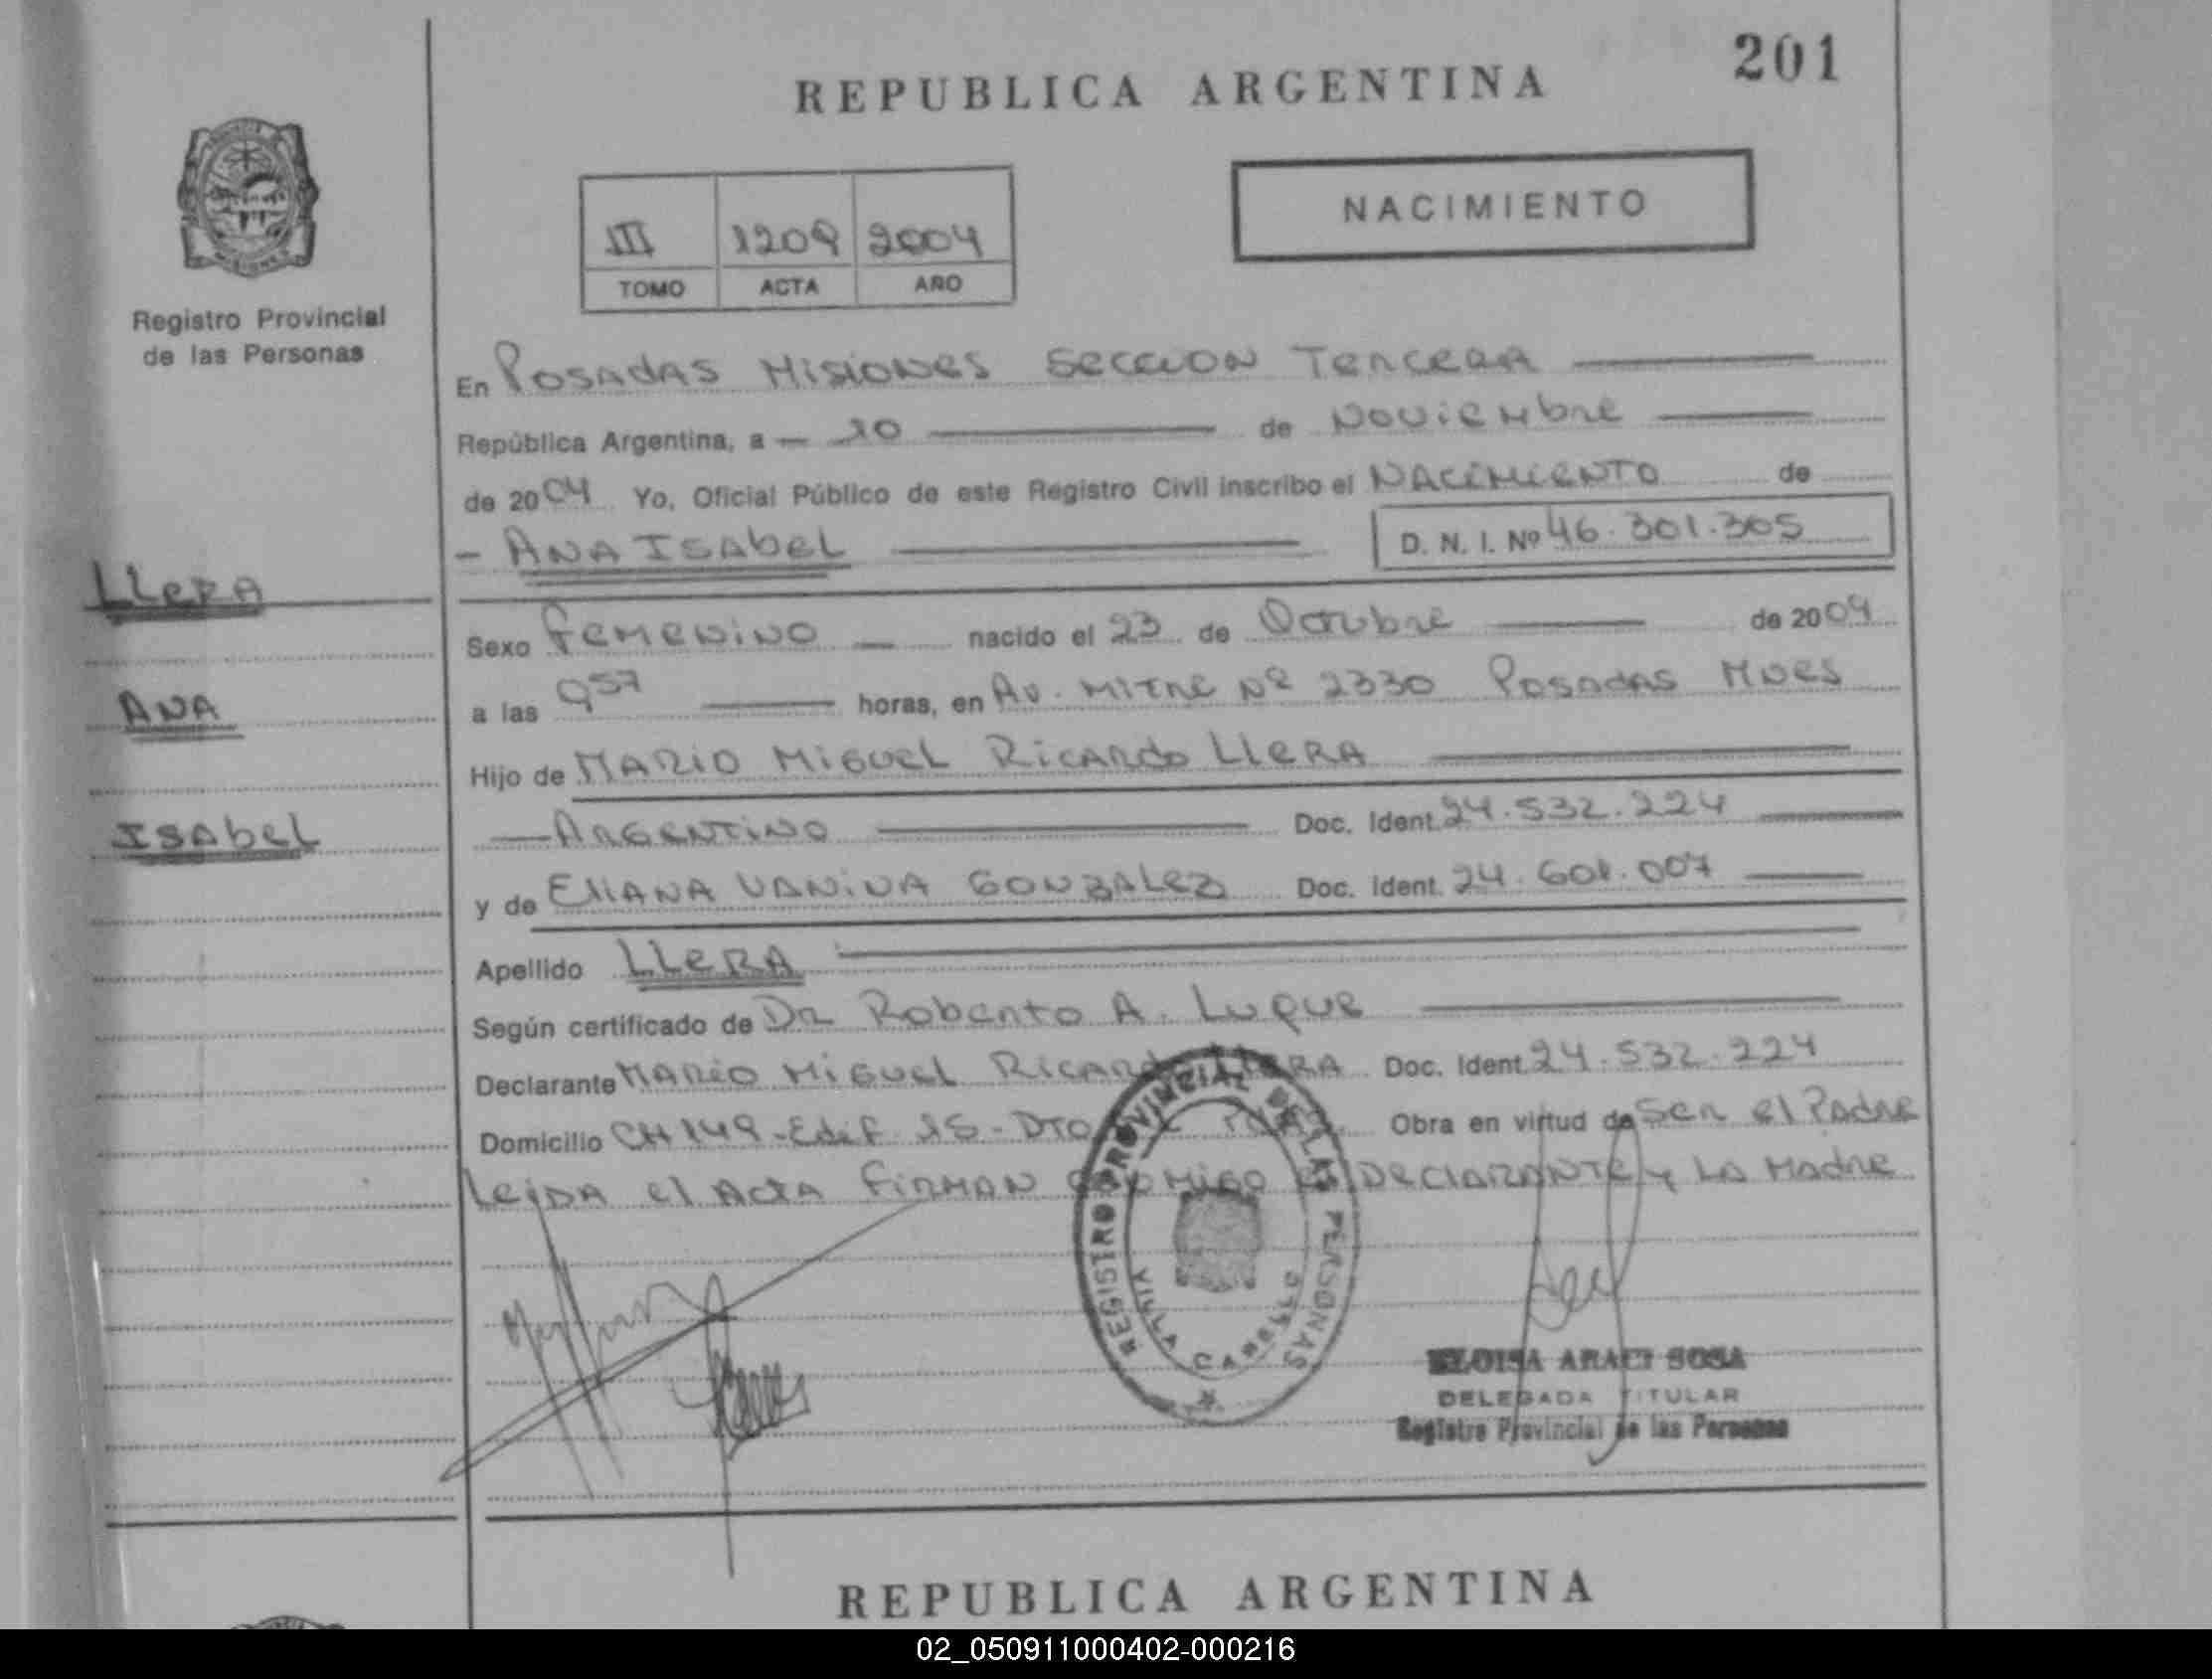 201
REPUBLICA ARGENTINA
NACIMIENTO
III 1209 2004
TOMO ACTA AÑO
MISIONES
Registro Provincial
de las Personas
En Posadas Misiones Seccion Tercera
República Argentina, a 10 de Noviembre
de 2004 Yo, Oficial Público de este Registro Civil inscribo el Nacimiento de
- Ana Isabel D. N. I. Nº 46.301.305
Llera
Ana
Isabel
Sexo Femenino nacido el 23 de Octubre de 2004
a las 9 57 horas, en Av. Mitre Nº 2330 Posadas Mnes
Hijo de Mario Miguel Ricardo Llera
Argentino Doc. Ident. 24.532.224
y de Eliana Vanina Gonzalez Doc. Ident. 24.601.007
Apellido Llera
Según certificado de Dr Roberto A. Luque
Declarante Mario Miguel Ricardo Llera Doc. Ident. 24.532.224
Domicilio CH 149-Edif 15-DTO Obra en virtud de Ser el Padre
Leida el Acta Firman conmigo el Declarante y La Madre
REGISTRO PROVINCIAL DE LAS PERSONAS
VILLA CABELLO
ELOISA ARACI SOSA
DELEGADA TITULAR
Registro Provincial de las Personas
REPUBLICA ARGENTINA
02_050911000402-000216